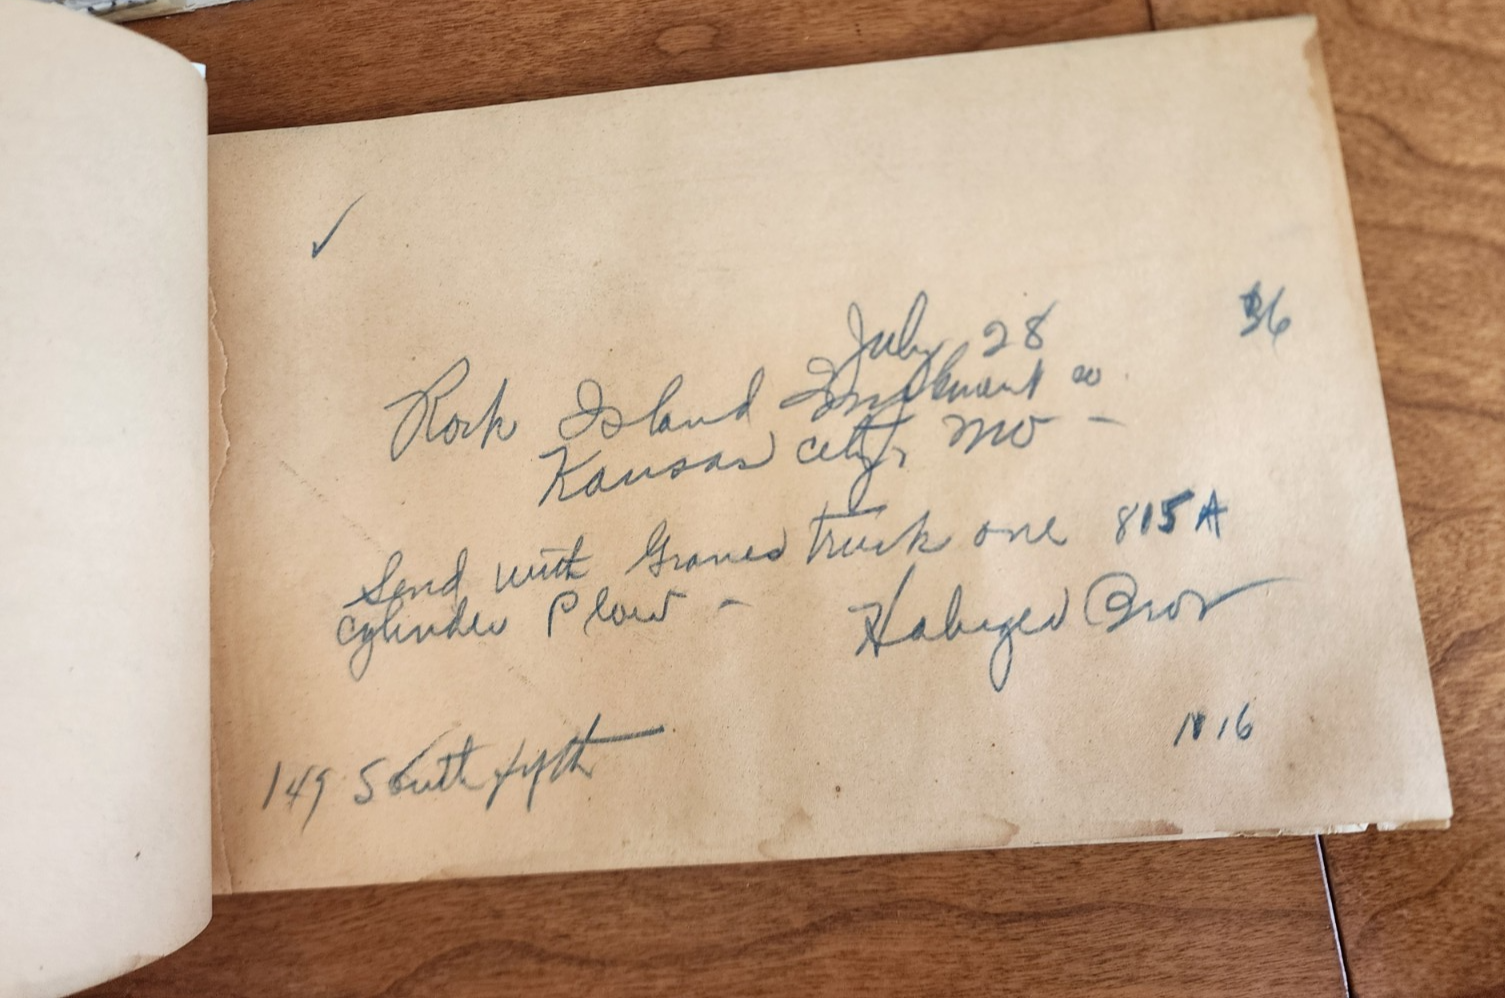 ✓
July 28 36
Rock Island Implement co.
Kansas city, Mo –
Send with Graves truck one 815 A
cylinder Plow –
Habiger Bros
16
149 South fifth